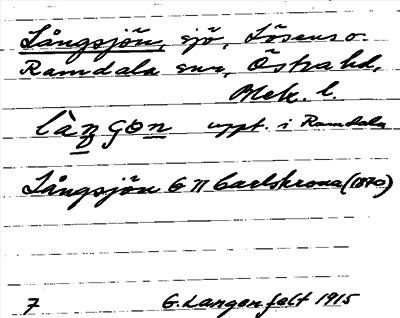 Långsjön, sjö, Lösens o.
Ramdala snr, Östra hd,
Blek. l.
làngon uppt. i Ramdala
Långsjön G π Carlskrona (1870)
7 G. Langenfelt 1915